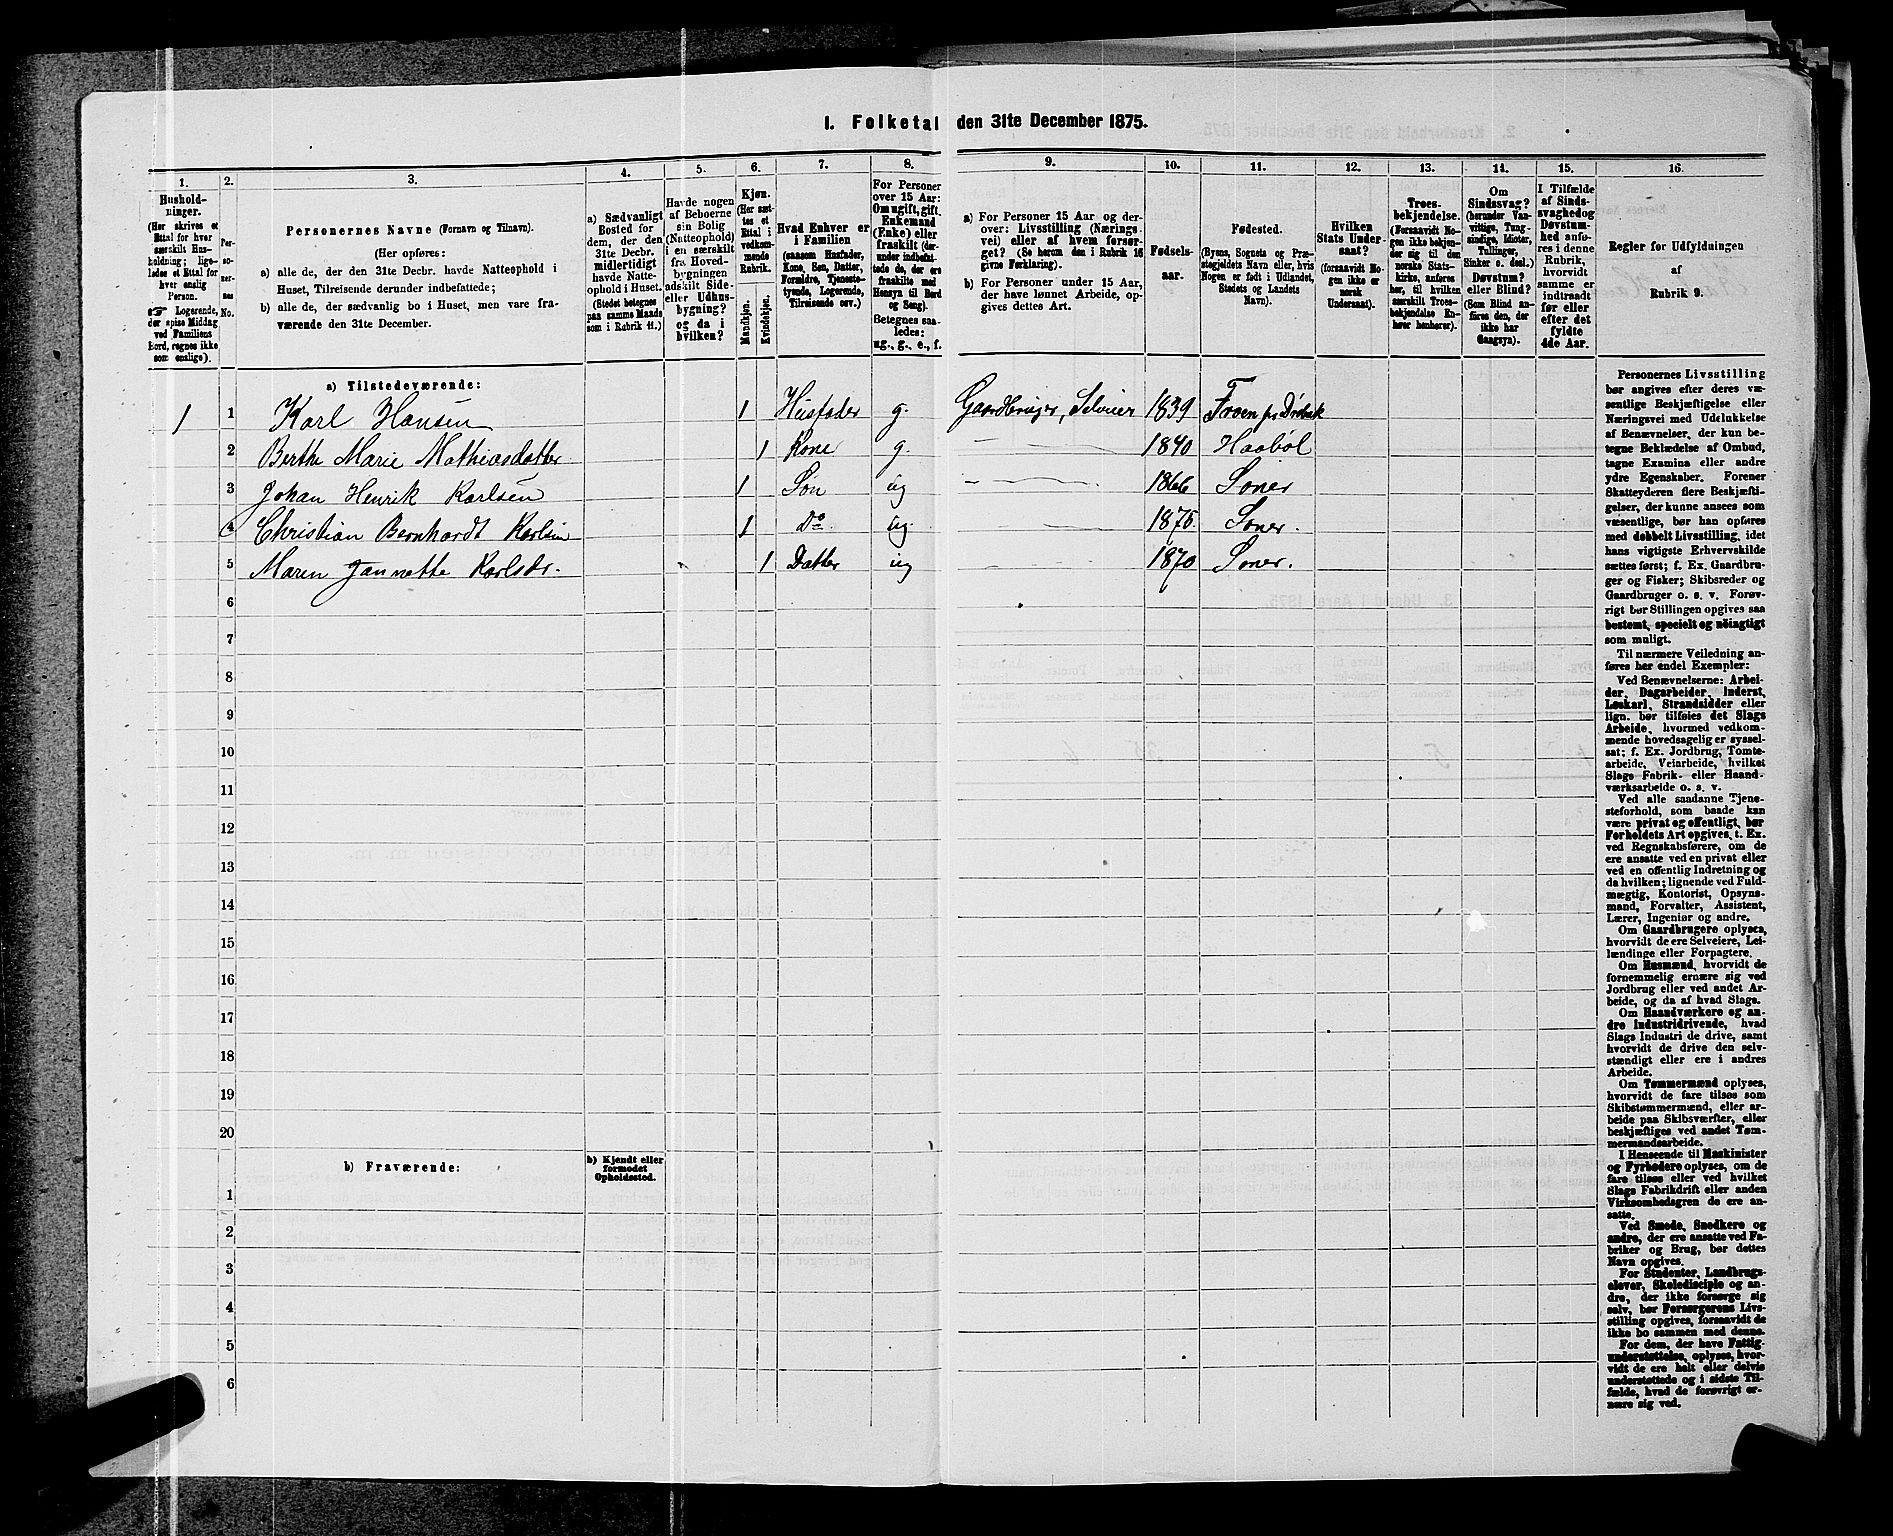 1. Folketal den 31te December 1875.
1.
2.
3.
4.
5.
6.
7.
8.
9.
10.
11.
12.
13.
14.
15.
16.
Hushold-
ninger.
(Her skrives et
Ettal for hver
særskilt Hus-
holdning; lige-
ledes et Ettal for
hver enslig
Person.
☞ Logerende,
der spise Middag
ved Familiens
Bord, regnes ikke
som enslige).
Per-
so-
ner-
nes
No.
Personernes Navne (Fornavn og Tilnavn).
(Her opføres:
a) alle de, der den 31te Decbr. havde Natteophold i
Huset, Tilreisende derunder indbefattede;
b) alle de, der sædvanlig bo i Huset, men vare fra-
værende den 31te December.
a) Sædvanligt
Bosted for
dem, der den
31te Decbr.
midlertidigt
havde Natte-
ophold i Huset.
(Stedet betegnes
paa samme Maade
som i Rubrik 11.)
Havde nogen
af Beboerne
sin Bolig
(Natteophold)
i en særskilt
fra Hoved-
bygningen
adskilt Side-
eller Udhus-
bygning?
og da i
hvilken?
Kjøn.
(Her sæt-
tes et
Ettal i
vedkom-
mende
Rubrik.)
Mandkjøn.
Kvindekjøn.
Hvad Enhver er
i Familien
(saasom Husfader,
Kone, Søn, Datter,
Forældre, Tjeneste-
tyende, Logerende,
Tilreisende osv.)
For Personer
over 15 Aar:
Om ugift, gift,
Enkemand
(Enke) eller
fraskilt (der-
under indbefat-
tede de, der ere
fraskilte med
Hensyn til Bord
og Seng).
Betegnes saa-
ledes:
ug., g., e., f.
a) For Personer 15 Aar og der-
over: Livsstilling (Nærings-
vei) eller af hvem forsør-
get? (Se herom den i Rubrik 16
givne Forklaring).
b) For Personer under 15 Aar,
der have lønnet Arbeide, op-
gives dettes Art.
Fødsels-
aar.
Fødested.
(Byens, Sognets og Præ-
stegjeldets Navn eller, hvis
Nogen er født i Udlandet,
Stedets og Landets
Navn).
Hvilken
Stats Under-
saat?
(forsaavidt No-
gen ikke er
norsk
Undersaat).
Troes-
bekjendelse.
(Forsaavidt No-
gen ikke bekjen-
der sig til den
norske Stats-
kirke, anføres
her, til hvilken
særskilt Troes-
bekjendelse En-
hver henhører).
Om
Sindssvag?
(herunder Van-
vittige, Tung-
sindige, Idioter,
Tullinger,
Sinker o. desl.)
Døvstum?
eller Blind?
(Som Blind an-
føres den, der
ikke har
Gangsyn).
I Tilfælde
af Sinds-
svaghed og
Døvstum-
hed anfø-
res i denne
Rubrik,
hvorvidt
samme er
indtraadt
før eller
efter det
fyldte
4de Aar.
Regler for Udfyldningen
af
Rubrik 9.
a) Tilstedeværende:
1 1 Karl Hansen 1 Husfader g. Gaardbruger, Selveier 1839 Froen pr Drøbak
2 Berthe Marie Mathiasdatter 1 Kone g. 1840 Haabøl
3 Johan Henrik Karlsen 1 Søn ug 1866 Soner
4 Christian Bernhardt Karlsen 1 Do. ug. 1875. Soner.
5 Maren Jannette Karlsdr. 1 Datter ug 1870 Soner.
6
7
8
9
10
11
12
13
14
15
16
17
18
19
20
b) Fraværende:
b) Kjendt eller
formodet
Opholdssted.
1
2
3
4
5
6
Personernes Livsstilling
bør angives efter deres væ-
sentlige Beskjæftigelse eller
Næringsvei med Udelukkelse
af Benævnelser, der kun be-
tegne Beklædelse af Ombud,
tagne Examina eller andre
ydre Egenskaber. Forener
Skatteyderen flere Beskjæfti-
gelser, der kunne ansees som
væsentlige, bør han opføres
med dobbelt Livsstilling, idet
hans vigtigste Erhvervskilde
sættes først; f. Ex. Gaardbru-
ger og Fisker; Skibsreder og
Gaardbruger o. s. v. Forøv-
rigt bør Stillingen opgives saa
bestemt, specielt og nøiagtigt
som muligt.
Til nærmere Veiledning an-
føres her endel Exempler:
Ved Benævnelserne: Arbei-
der, Dagarbeider, Inderst,
Løskarl, Strandsidder eller
lign. bør tilføies det Slags
Arbeide, hvormed vedkom-
mende hovedsagelig er syssel-
sat; f. Ex. Jordbrug, Tomte-
arbeide, Veiarbeide, hvilket
Slags Fabrik- eller Haand-
værksarbeide o. s. v.
Ved alle saadanne Tjene-
steforhold, som baade kan
være privat og offentligt, bør
Forholdets Art opgives, t. Ex.
ved Regnskabsførere, om de
ere ansatte ved en privat eller
ved en offentlig Indretning og
da hvilken; lignende ved Fuld-
mægtig, Kontorist, Opsyns-
mand, Forvalter, Assistent,
Lærer, Ingeniør og andre.
Om Gaardbrugere oplyses,
hvorvidt de ere Selveiere, Lei-
lændinge eller Forpagtere.
Om Husmænd, hvorvidt de
fornemmelig ernære sig ved
Jordbrug eller ved andet Ar-
beide, og da af hvad Slags.
Om Haandværkere og an-
dre Industridrivende, hvad
Slags Industri de drive, samt
hvorvidt de drive den selv-
stændigt eller ere i andres
Arbeide.
Om Tømmermænd oplyses,
hvorvidt de fare tilsøs som
Skibstømmermænd, eller ar-
beide paa Skibsværfter, eller
beskjæftiges ved andet Tøm-
mermandsarbeide.
I Henseende til Maskinister
og Fyrbødere oplyses, om de
fare tilsøs eller ved hvilket
Slags Fabrikdrift eller anden
Virksomhedsgren de ere an-
satte.
Ved Smede, Snedkere og
andre, der ere ansatte ved Fa-
briker og Brug, bør dettes
Navn opgives.
For Studenter, Landbrugs-
elever, Skoledisciple og an-
dre, der ikke forsørge sig
selv, bør Forsørgerens Livs-
stilling opgives, forsaavidt de
ikke bo sammen med denne.
For dem, der have Fattig-
understøttelse, oplyses, hvor-
vidt de ere helt eller delvis
understøttede og i sidste Til-
fælde, hvad de forøvrigt er-
nære sig ved.